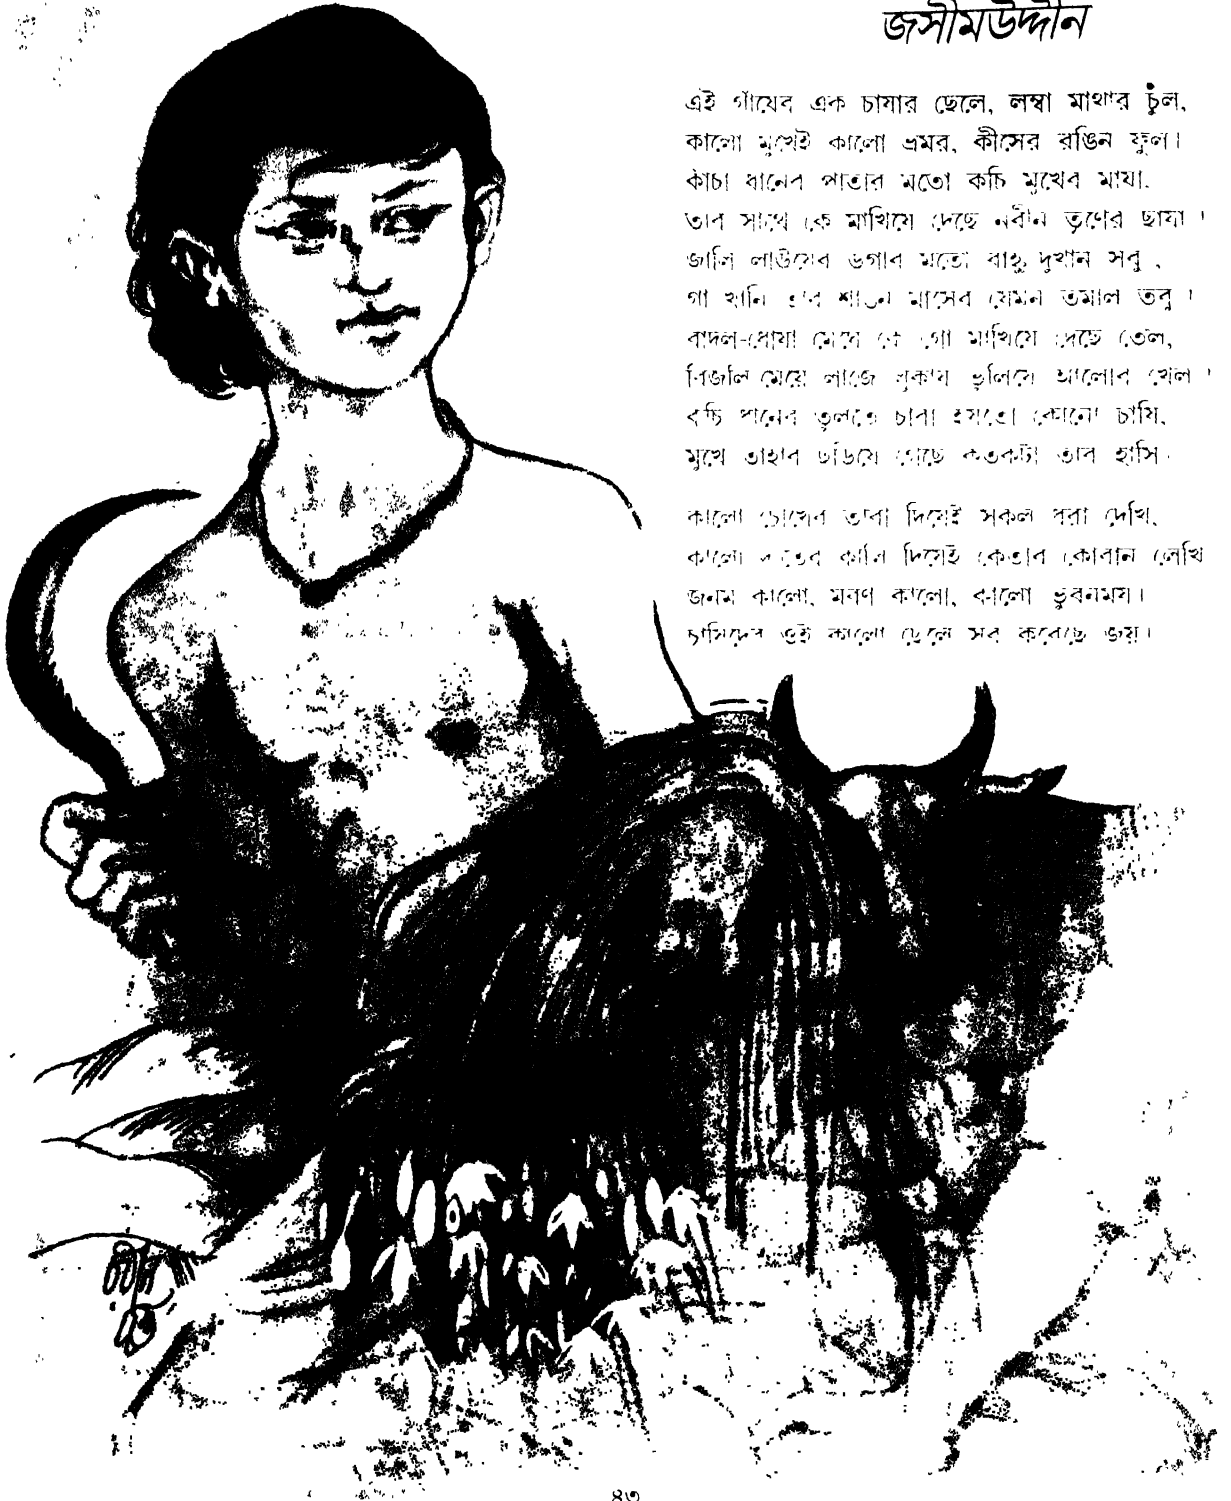 জসীমউদ্দীন
এই গাঁয়ের এক চাষার ছেলে, লম্বা মাথার চুল,
কালো মুখেই কালো ভ্রমর, কীসের রঙিন ফুল।
কাঁচা ধানের পাতার মতো কচি মুখের মায়া,
তার সাথে কে মাখিয়ে দেছে নবীন তৃণের ছায়া।
জালি লাউয়ের ডগার মতো বাহু দুখান সরু,
গা খানি তার শাওন মাসের যেমন তমাল তরু।
বাদল-ধোয়া মেঘে কে গো মাখিয়ে দেছে তেল,
বিজলি মেয়ে লাজে লুকায় ভুলিয়ে আলোর খেল।
কচি ধানের তুলতে চারা হয়তো কোনো চাষি,
মুখে তাহার ছড়িয়ে গেছে কতকটা তার হাসি।
কালো চোখের তারা দিয়েই সকল ধরা দেখি,
কালো দাতের কালি দিয়েই কেতাব কোরান লেখি
জনম কালো, মরণ কালো, কালো ভুবনময়।
চাষিদের ওই কালো ছেলে সব করেছে জয়।
৪৩